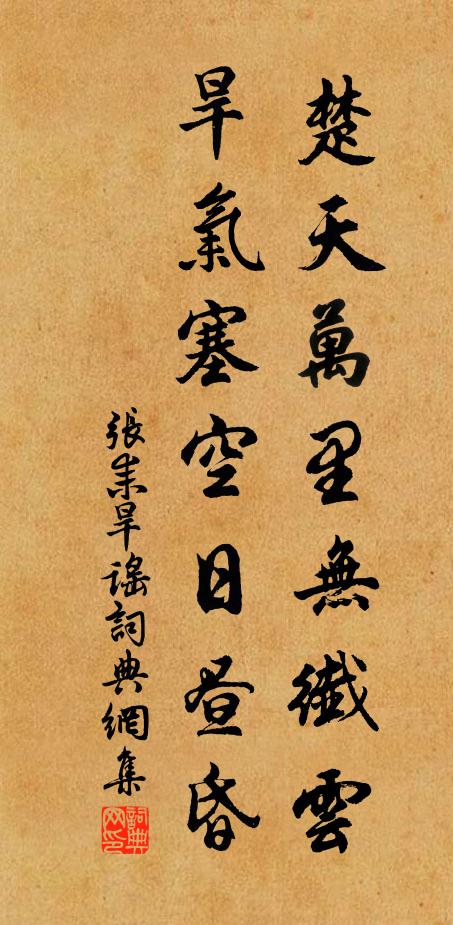 楚天萬里無纖雲
旱氣塞空日晝昏
張耒旱謠詞典網集
詞典網印